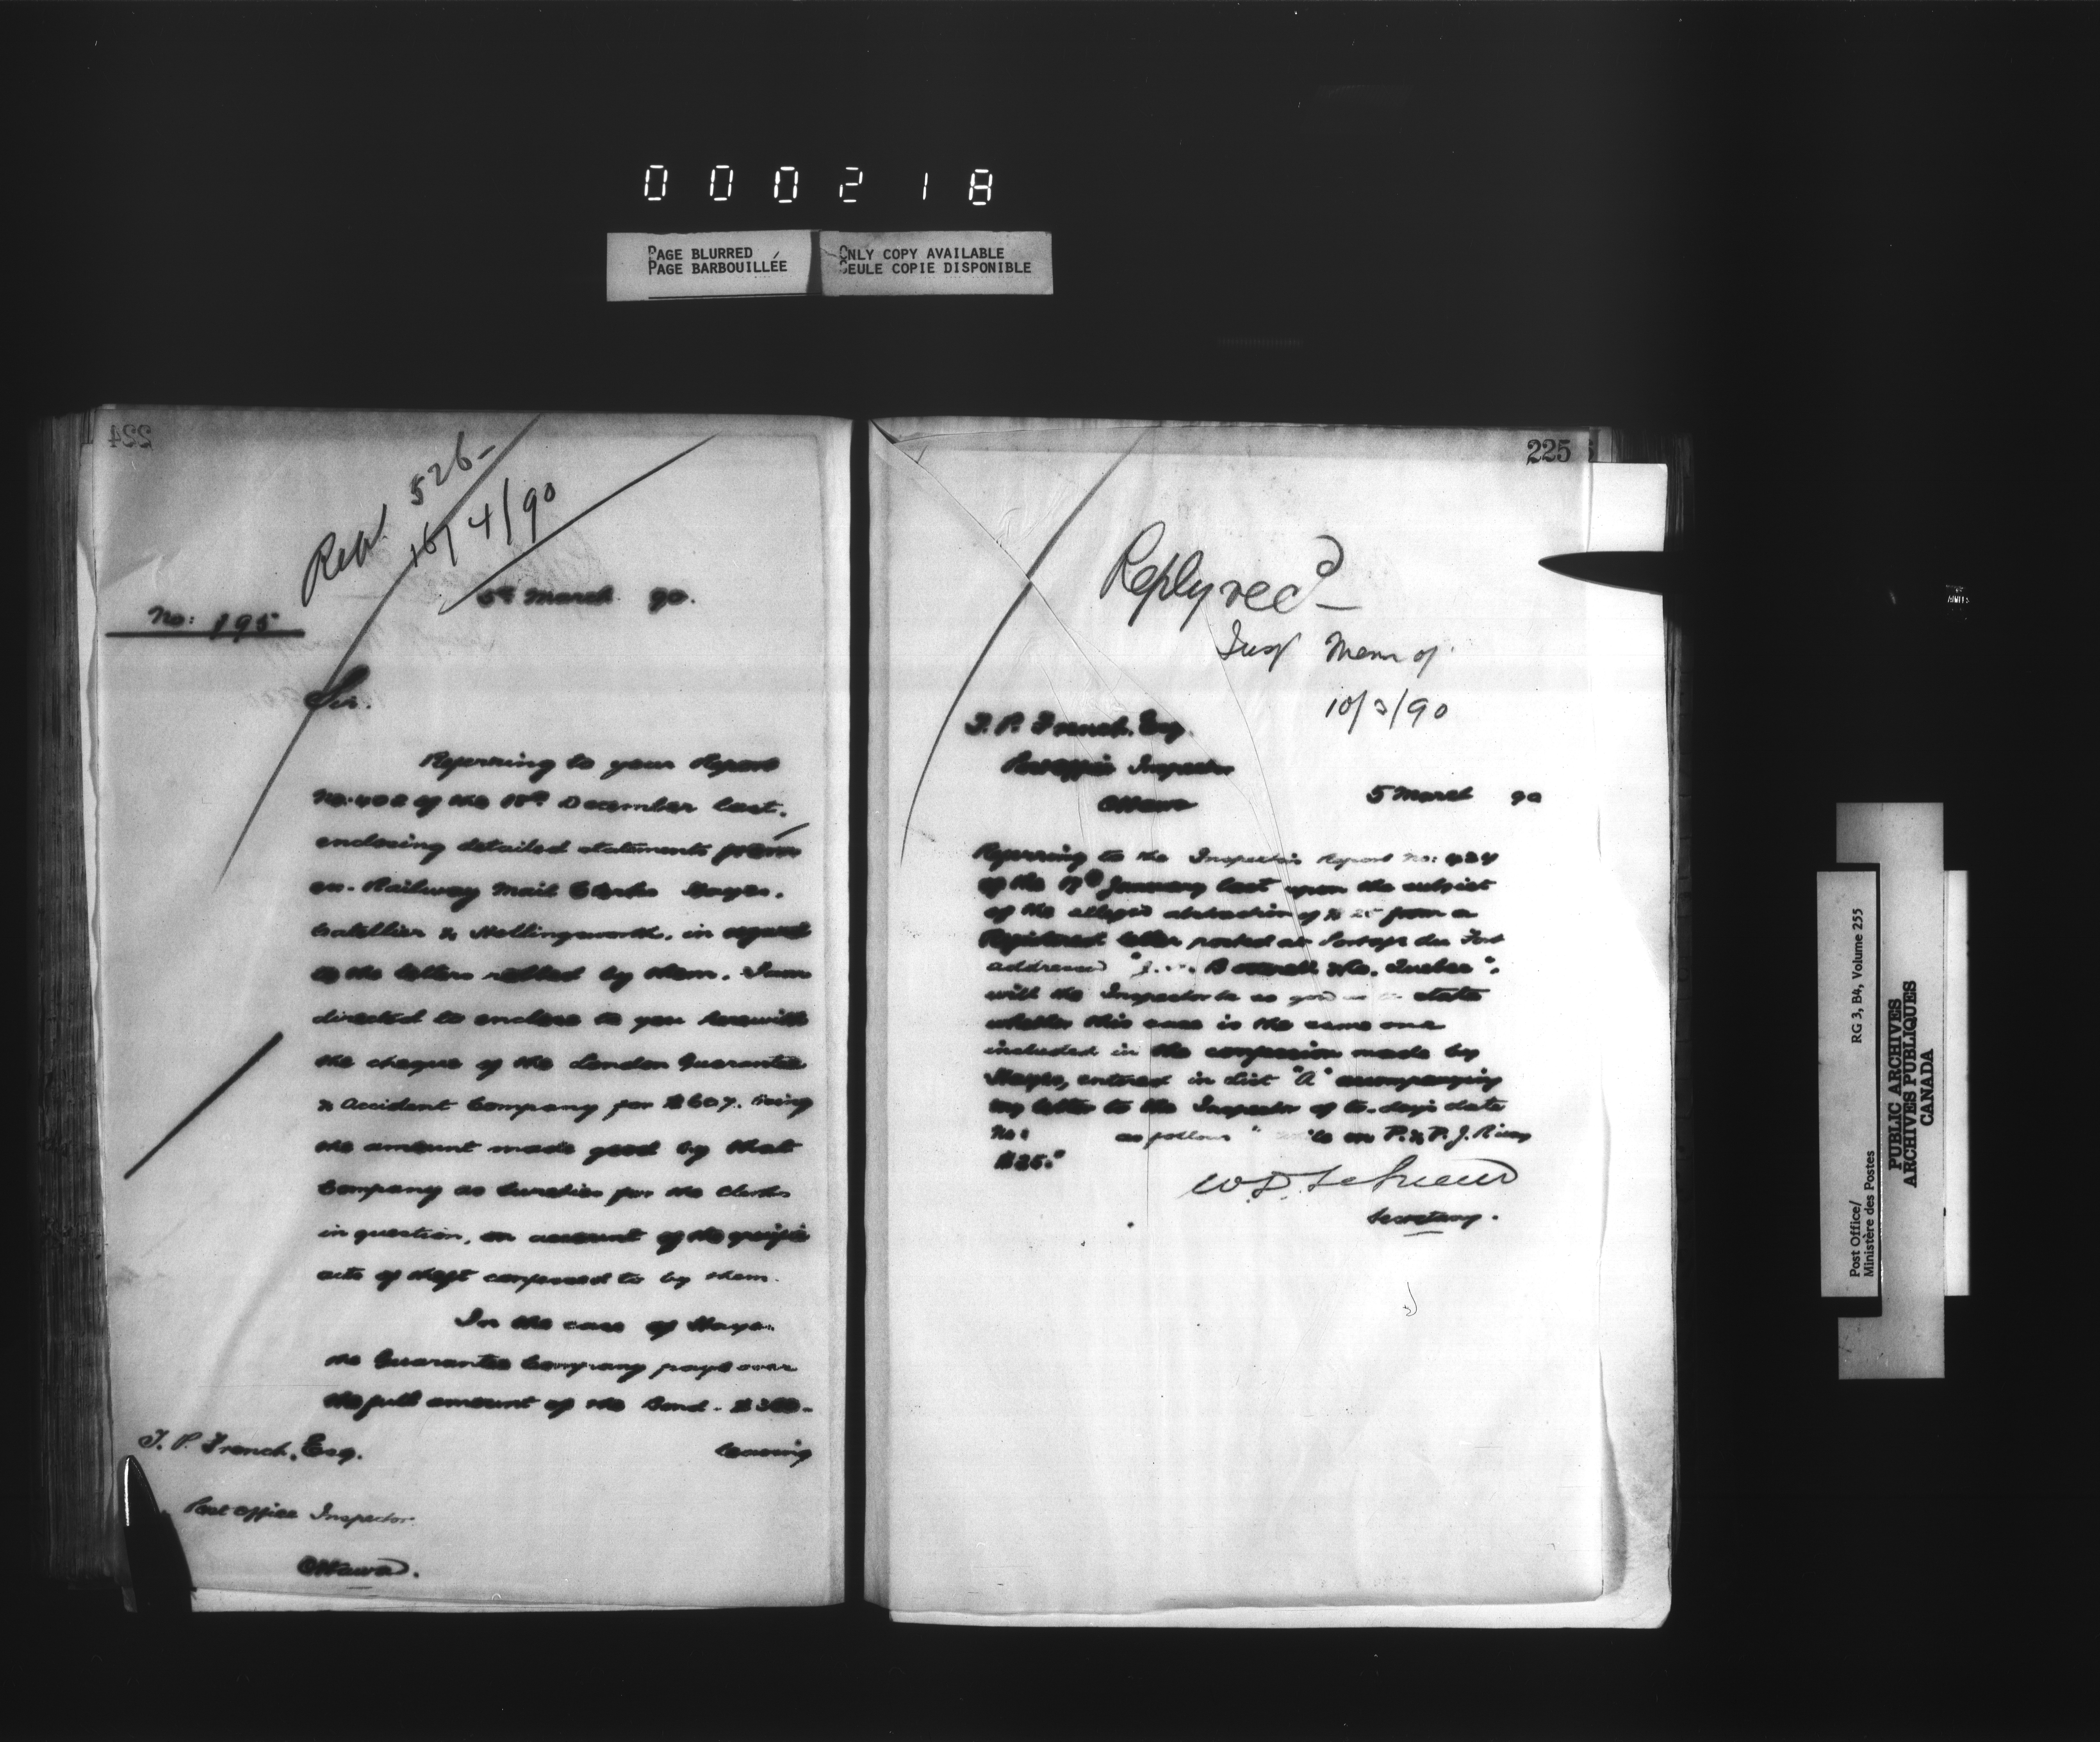 000218
PAGE BLURRED
PAGE BARBOUILLÉE
ONLY COPY AVAILABLE
SEULE COPIE DISPONIBLE
224
526-
16/4/90
5th March 90.
No: 195
Sir.
Referring to your Report
No. 402 of the December last.
enclosing detailed statements from
ex. Railway Mail Clerks Hayes.
& Hollingsworth. in regard
to the letters robbed by them. I am
directed to enclose to you herewith
the cheque of the London Guarantee
& Accident Company for $607. being
the amount made good by that
Company as Sureties for the Clerks
in question, on account of the specific
acts of theft confessed to by them.
In the case of Hayes.
the Guarantee Company pays over
the full amount of the Bond - $300-
leaving
T. P. French, Esq.
Post Office Inspector
Ottawa.
225
Reply recd -
Insp Mem of
10/3/90
T. P. French, Esq.
Post Office Inspector
Ottawa
5 March 90
Referring to the Inspector's Report No:
of the 17th January last upon the subject
of the alleged abstraction of $25 from a
Registered letter posted at Portage du Fort
addressed "J. Quebec".
will the Inspector be so good as to state
whether this case is the same one
included in the confession made by
Hayes, entered in List "A" accompanying
my letter to the Inspector of to-day's date
No: as follows " on P. & P. J. Rwy
$25."
Secretary.
Post Office/
Ministère des Postes
RG 3, B4, Volume 255
PUBLIC ARCHIVES
ARCHIVES PUBLIQUES
CANADA